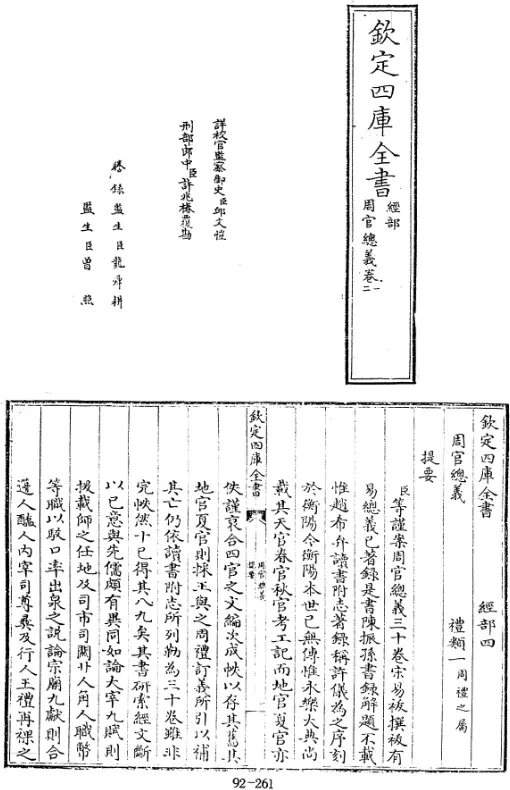 欽定四庫全書
經部
周官總義卷一
二
詳校官監察御史臣邱文愷
刑部郎中臣許兆椿覆勘
謄錄監生臣龍舜耕
監生臣曾照
欽定四庫全書
經部四
周官總義
禮類一周禮之屬
提要
臣等謹案周官總義三十卷宋易祓撰祓有
易總義已著錄是書陳振孫書錄解題不載
惟趙希弁讀書附志著錄稱許儀為之序刻
於衡陽今衡陽本世已無傳惟永樂大典尚
載其天官春官秋官考工記而地官夏官亦
欽定四庫全書
周官總義
提要
佚謹裒合四官之文編次成帙以存其舊其
地官夏官則採王與之周禮訂義所引以補
其亡仍依讀書附志所列勒為三十卷雖非
完帙然十已得其八九矣其書研索經文斷
以己意與先儒頗有異同如論大宰九賦則
援載師之任地及司市司關卝人角人職幣
等職以駁口率出泉之說論宗廟九獻則合
籩人醢人內宰司尊彞及行人王禮再祼之
92-261